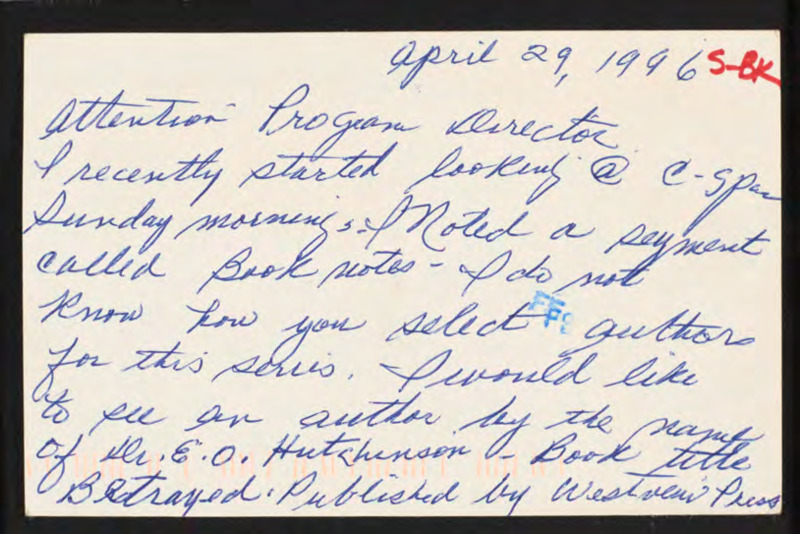 April 29, 1996 S-BK
Attention Program Director
I recently started looking @ C-Span
Sunday mornings. I Noted a segment
called Book notes - I do not
know how you select authors
for this series. I would like
to see an author by the name
of Dr. E.O. Hutchinson - Book title
Betrayed. Published by Westview Press